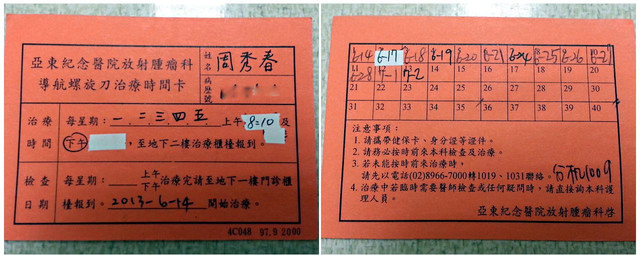 亞東紀念醫院放射腫瘤科
導航螺旋刀治療時間卡
姓名 周秀春
病歷號
治療時間
每星期：一、二三四五 上午 8=10 及
下午 ，至地下二樓治療櫃檯報到。
檢查日期
每星期： 上午下午 治療完請至地下一樓門診櫃
檯報到。2013-6-14 開始治療。
4C048 97.9.2000
6-14 6-17 6-18 6-19 6-20 6-21 6-24 6-25 6-26 6-27
6-28 7-1 7-2 14 15 16 17 18 19 20
21 22 23 24 25 26 27 28 29 30
31 32 33 34 35 36 37 38 39 40
注意事項：
1. 請攜帶健保卡、身分證等證件。
2. 請務必按時前來本科檢查及治療。
3. 若未能按時前來治療時，
請先以電話(02)8966-7000轉1019、1031聯絡。分机1009
4. 治療中若臨時需要醫師檢查或任何疑問時，請直接詢本科護
理人員。
亞東紀念醫院放射腫瘤科啓